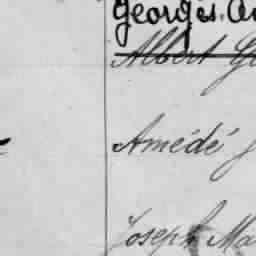 Georges
Albert
Amédé
Joseph Ma